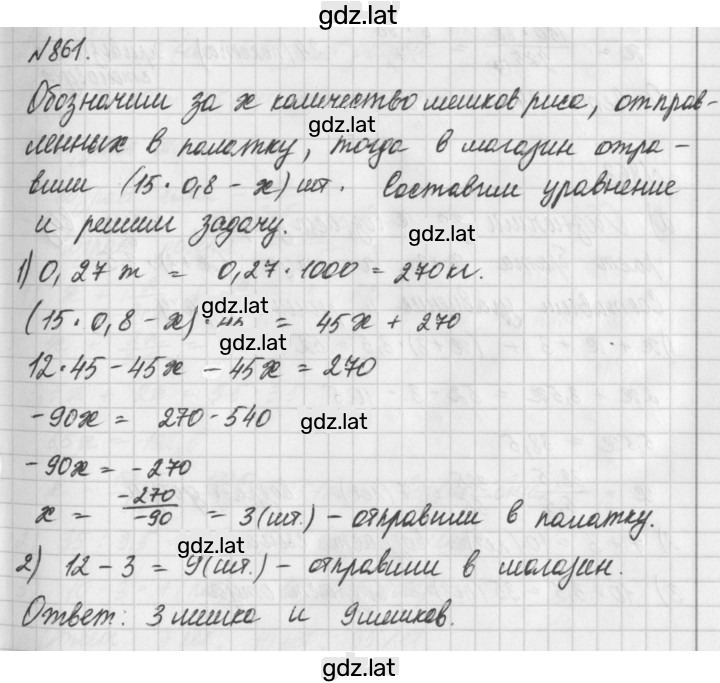 gdz.lat
№861.
Обозначим за x количество мешков риса, отправ-
gdz.lat
ленных в палатку, тогда в магазин отра-
вили (15·0,8-x) шт. Составим уравнение
и решим задачу.
gdz.lat
1) 0,27 т = 0,27·1000 = 270кг.
gdz.lat
(15·0,8-x)· = 45x + 270
gdz.lat
12·45-45x-45x = 270
-90x = 270-540
gdz.lat
-90x = -270
x = -270/-90 = 3(шт.) - отправили в палатку.
gdz.lat
2) 12-3 = 9(шт.) - отправили в магазин.
Ответ: 3 мешка и 9 мешков.
gdz.lat